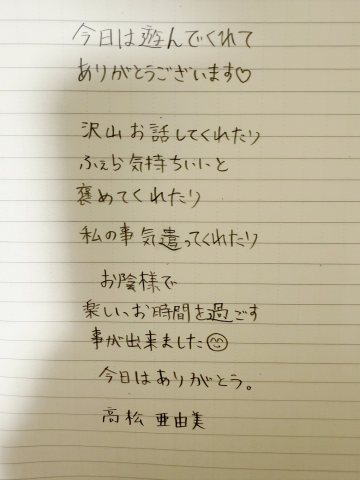 今日は遊んでくれて
ありがとうございます♡
沢山お話してくれたり
ふぇら気持ちいいと
褒めてくれたり
私の事気遣ってくれたり
お陰様で
楽しいお時間を過ごす
事が出来ました😊
今日はありがとう。
高松 亜由美